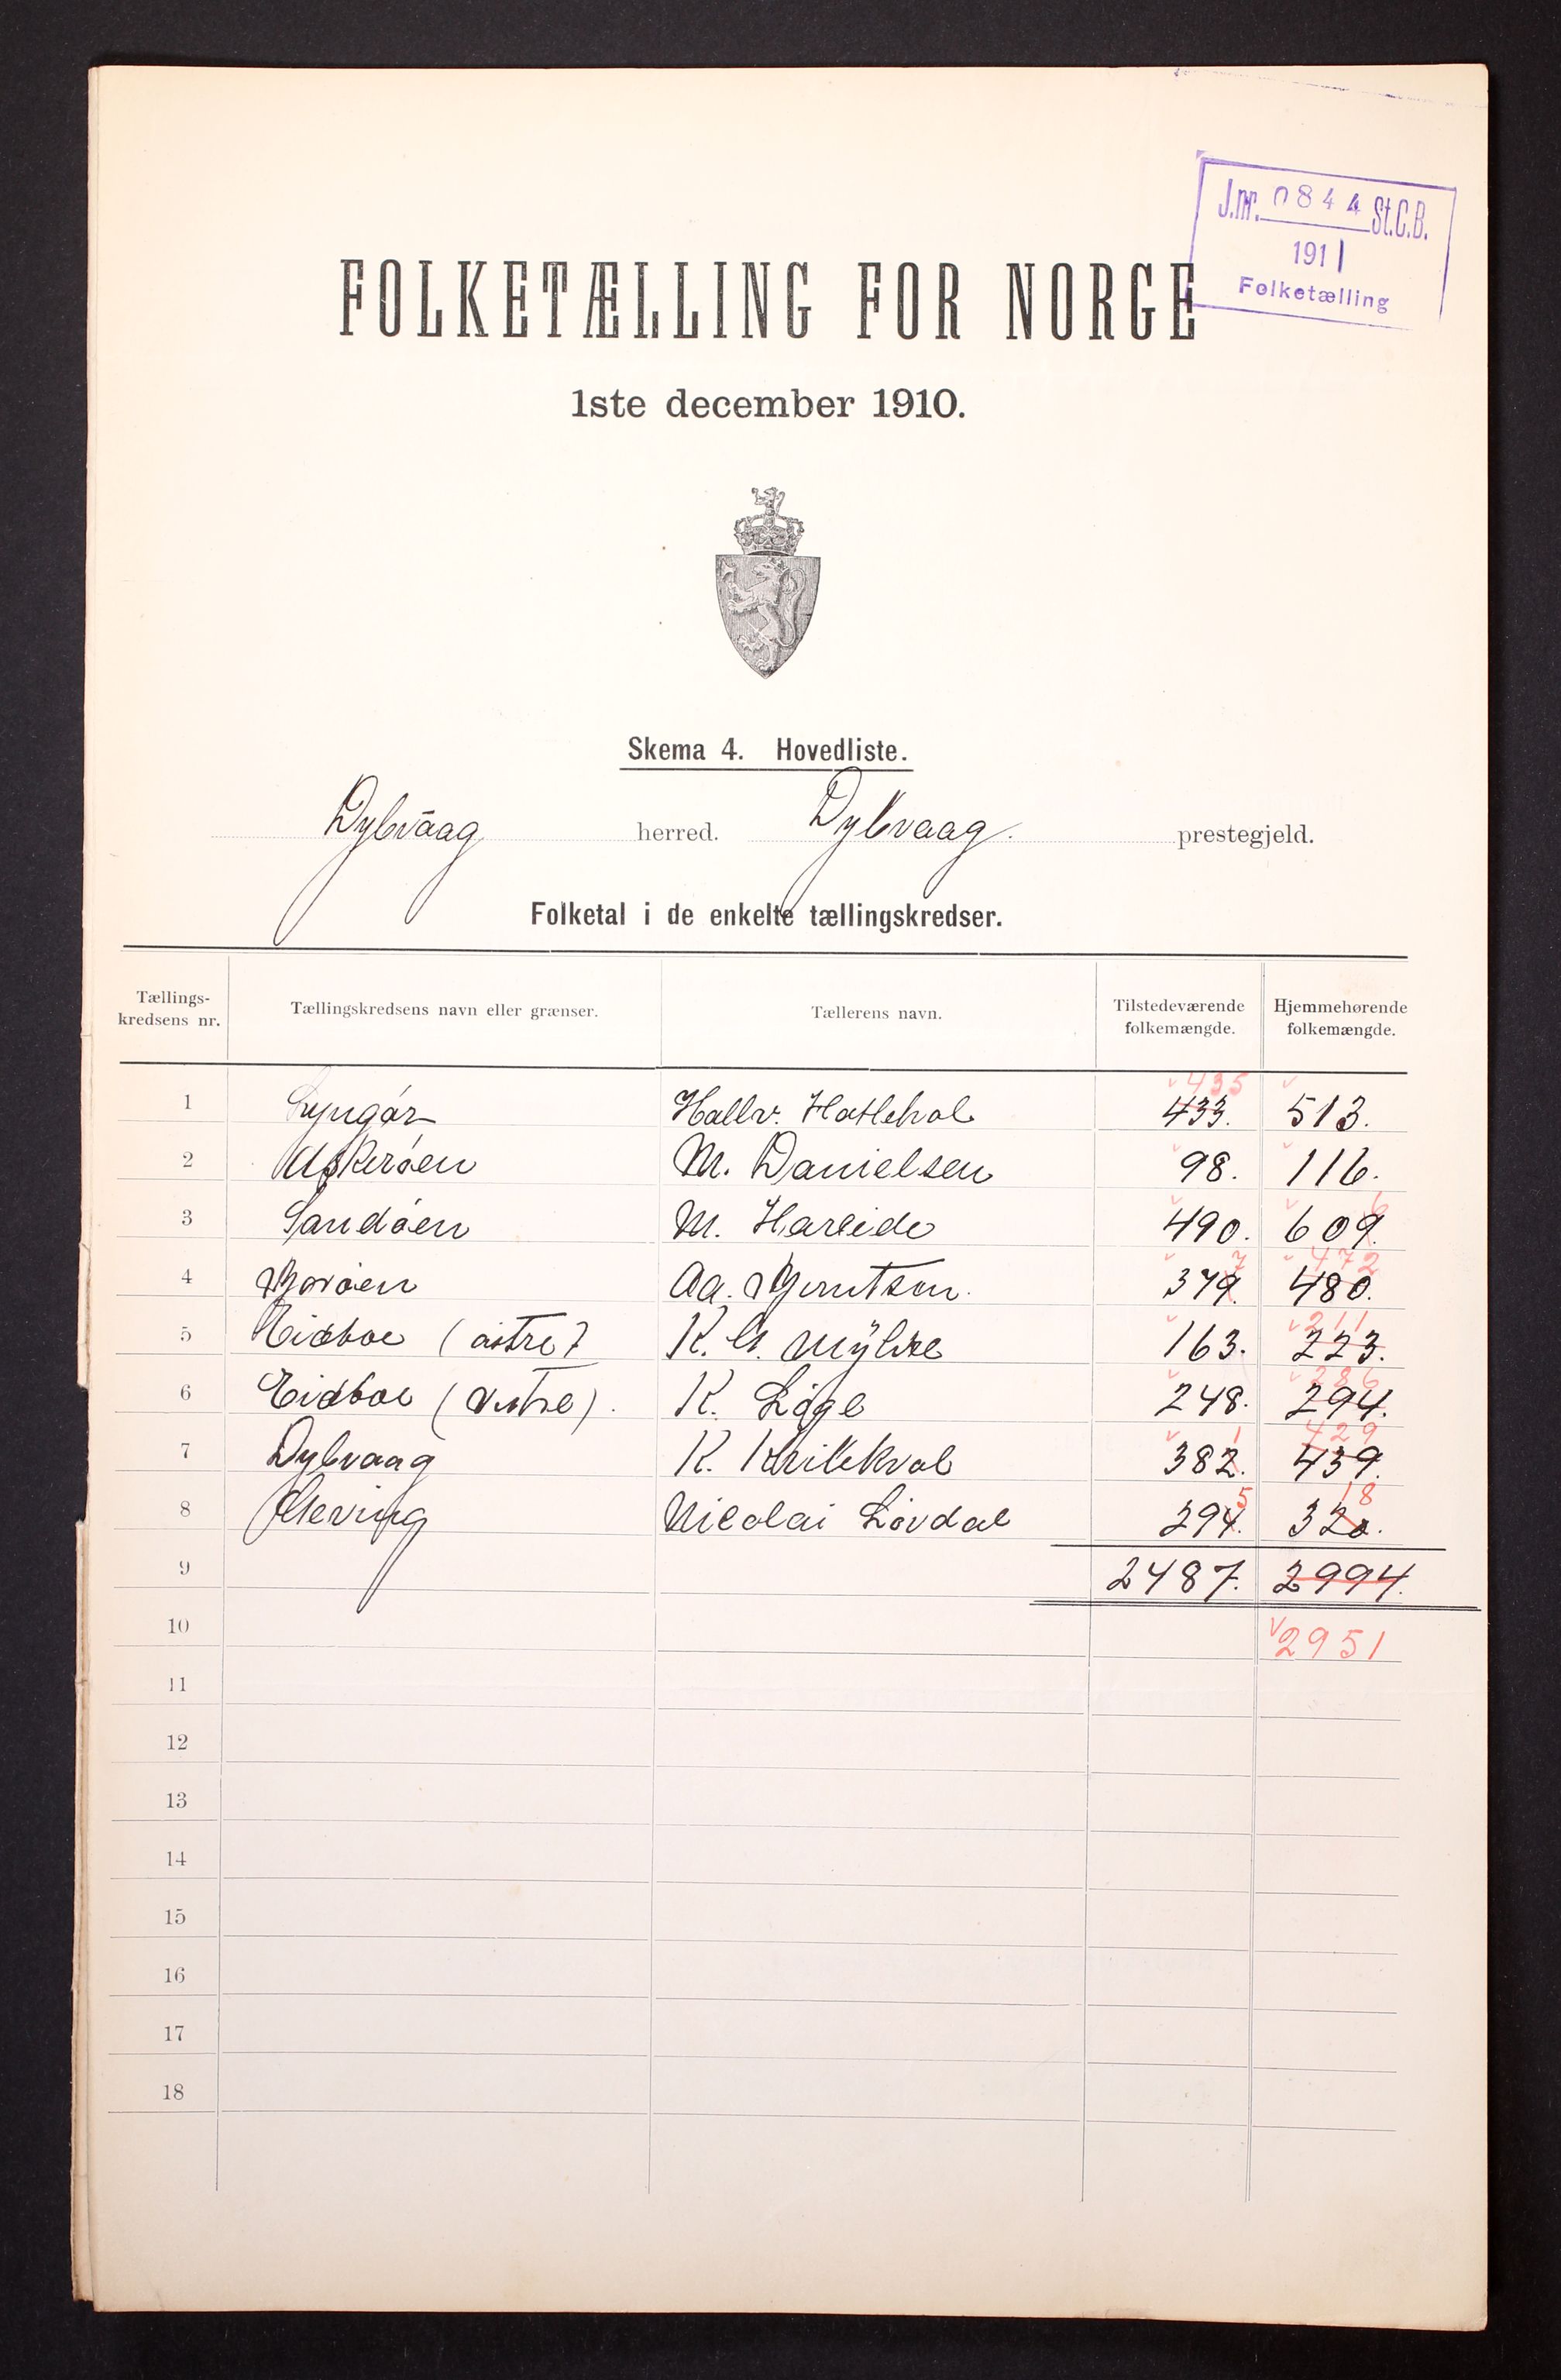 J.nr. 0844 St.C.B.
1911
Folketælling
FOLKETÆLLING FOR NORGE
1ste december 1910.
Skema 4. Hovedliste.
Dybvaag herred. Dybvaag. prestegjeld.
Folketal i de enkelte tællingskredser.
Tællings-kredsens nr. Tællingskredsens navn eller grænser. Tællerens navn. Tilstedeværende folkemængde. Hjemmehørende folkemængde.
435
1 Lyngør Hallv. 433. 513.
2 Askerøen M. Danielsen 98. 116.
6
3 Sandøen M. Hareide 490. 609.
7 472
4 Borøen Aa. Berntsen. 379. 480.
211
5 Eidboe (østre) K. 163. 223.
286
6 Eidboe (vestre). K. Løge 248. 294.
1 429
7 Dybvaag K. 382. 439.
5 18
8 Gjeving Nicolai Løvdal 294. 320.
9 2487. 2994.
10 2951
11
12
13
14
15
16
17
18